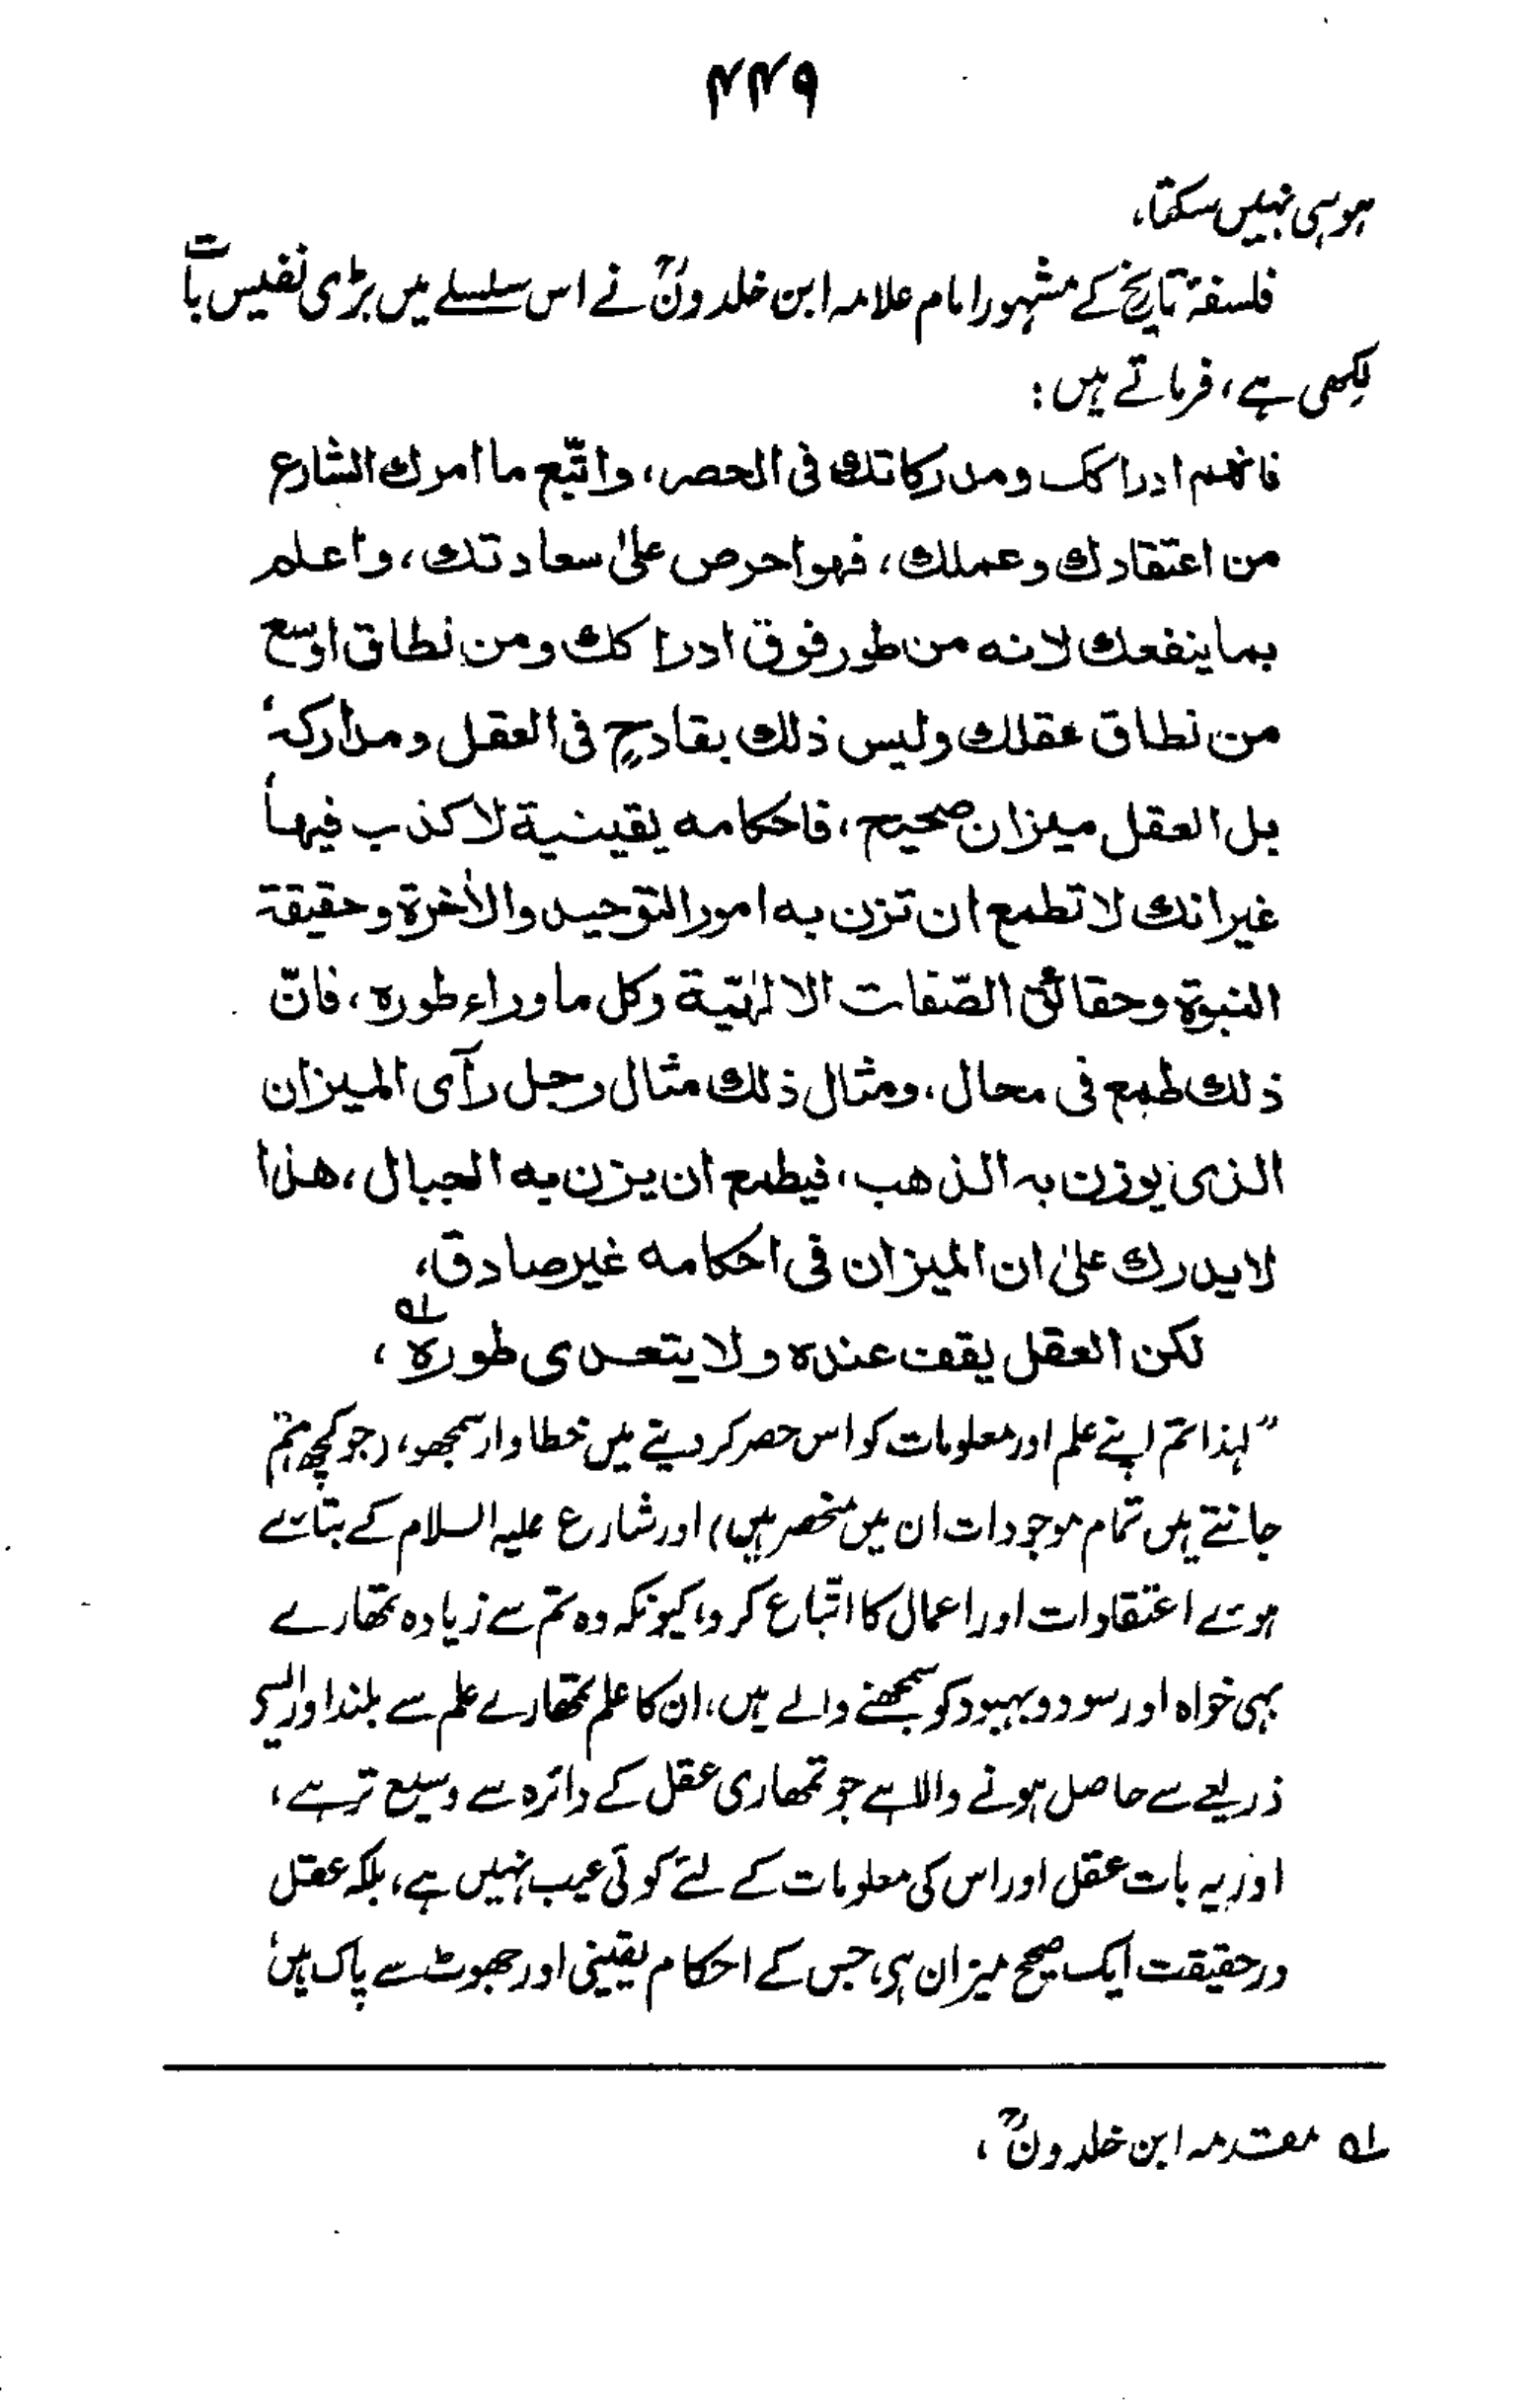 ۴۴۹
ہو ہی نہیں سکتا،
فلسفۂ تاریخ کے مشہور امام علامہ ابن خلدونؒ نے اس سلسلے میں بڑی نفیس بات
لِکھی ہے، فرماتے ہیں:
فاتهم ادراکک ومدرکاتك فی الحصر، واتّبع ما امرك الشارع
من اعتقادك وعملك، فهو احرص علیٰ سعادتك، واعلم
بما ینفعك لانه من طور فوق ادراکك ومن نطاق اوسع
من نطاق عقلك ولیس ذلك بقادحٍ فی العقل ومدارکہ،
بل العقل میزان صحیح، فاحکامه یقینیة لا کذب فیها،
غیر انك لا تطمع ان تزن به امور التوحید والاٰخرة وحقیقة
النبوة وحقائق الصّفات الالٰهیّة وکل ما وراء طوره، فانّ
ذلك طمع فی محال، ومثال ذلك مثال رجل رآی المیزان
الذی یوزن بہ الذهب، فیطمع ان یزن به الجبال، هذا
لا یدرك علیٰ ان المیزان فی احکامه غیر صادق،
لکن العقل یقف عنده ولا یتعدی طوره ؎۱،
”لہٰذا تم اپنے علم اور معلومات کو اس حصر کر دینے میں خطاوار سمجھو، (جو کچھ ہم
جانتے ہیں تمام موجودات ان میں منحصر ہیں) اور شارع علیہ السلام کے بتائے
ہوئے اعتقادات اور اعمال کا اتّباع کرو، کیونکہ وہ تم سے زیادہ تمھارے
بہی خواہ اور سود و بہبود کو سمجھنے والے ہیں، ان کا علم تمھارے علم سے بلند اور ایسے
ذریعے سے حاصل ہونے والا ہے جو تمھاری عقل کے دائرہ سے وسیع تر ہے،
اور یہ بات عقل اور اس کی معلومات کے لئے کوئی عیب نہیں ہے، بلکہ عقل
درحقیقت ایک صحیح میزان ہی، جس کے احکام یقینی اور جھوٹ سے پاک ہیں،
؎۱ مقدمہ ابن خلدونؒ،